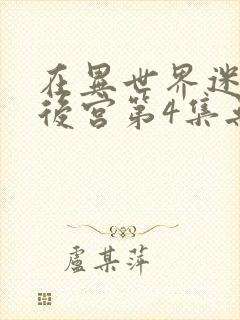 在異世界迷
後宮第4集
盧某萍